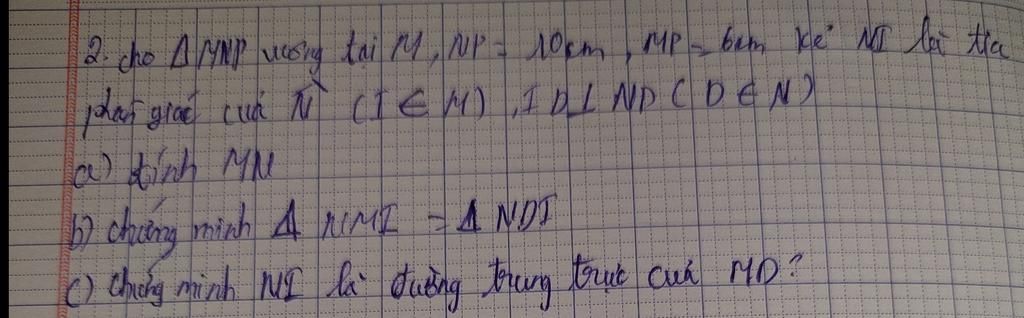 2. cho Δ MNP vuông tại M, NP = 10cm, MP = 6cm kẻ NI là tia
phân giác của N̂ (I ∈ M), ID⊥ ND (D ∈ N)
a) tính MN
b) chứng minh Δ NMI = Δ NDI
c) chứng minh NI là đường trung trực của MD?